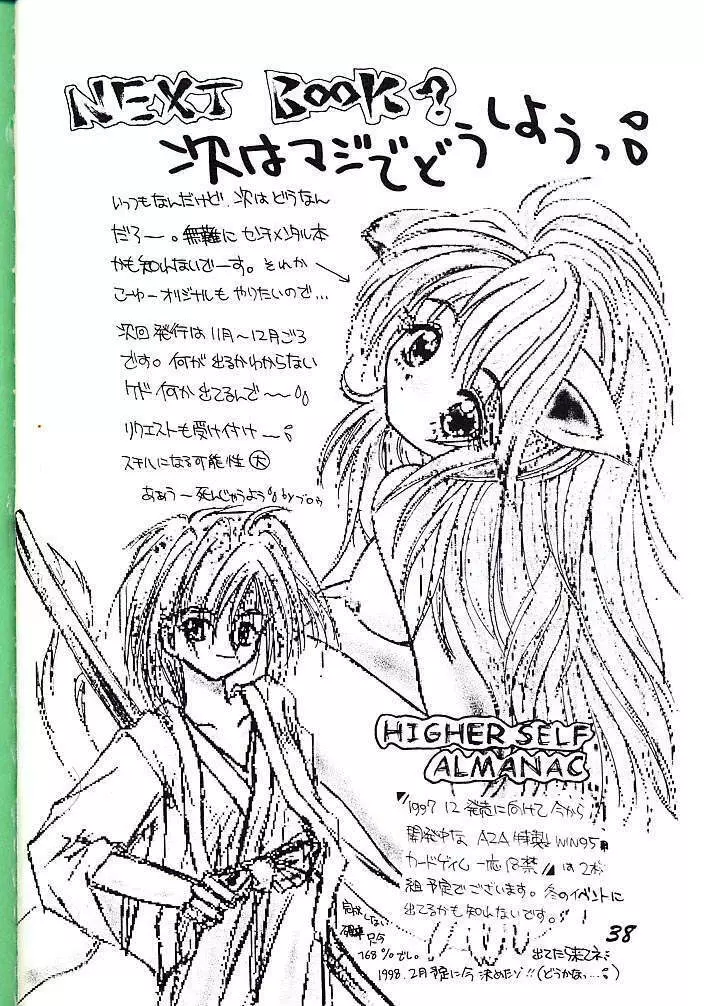 NEXT BOOK?
次はマジでどうしようっ
いつもなんだけど、次はどうなん
だろー。無難にセンチメンタル本
かも知れないでーす。それか
こーゆーオリジナルもやりたいので…
次回発行は11月〜12月ごろ
です。何が出るかわからない
ケド何か出てるんで〜
リクエストも受け付け〜
スキルになる可能性大
ああう〜死んじゃうよう by
HIGHER SELF
ALMANAC
1997 12 発売に向けて今から
開発中な A2A 特製 WIN95
カードゲイム 一応 禁 は2枚
組予定でございます。冬のイベントに
出てるかも知れないです。
完成しない
確率
只今
168%でし。
出てた来てネ
1998.2月予定に今決めたゾ!!(どうかな…)
38